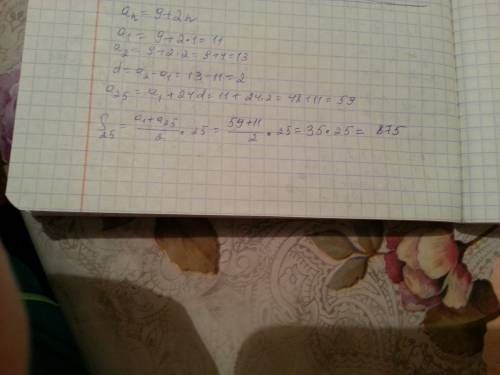 aₙ = 9+2n
a₁ = 9+2·1=11
a₂ = 9+2·2=9+4=13
d = a₂-a₁ = 13-11=2
a₂₅ = a₁+24d = 11+24·2=48+11=59
S₂₅ = (a₁+a₂₅)/2 · 25 = (59+11)/2 · 25 = 35·25 = 875